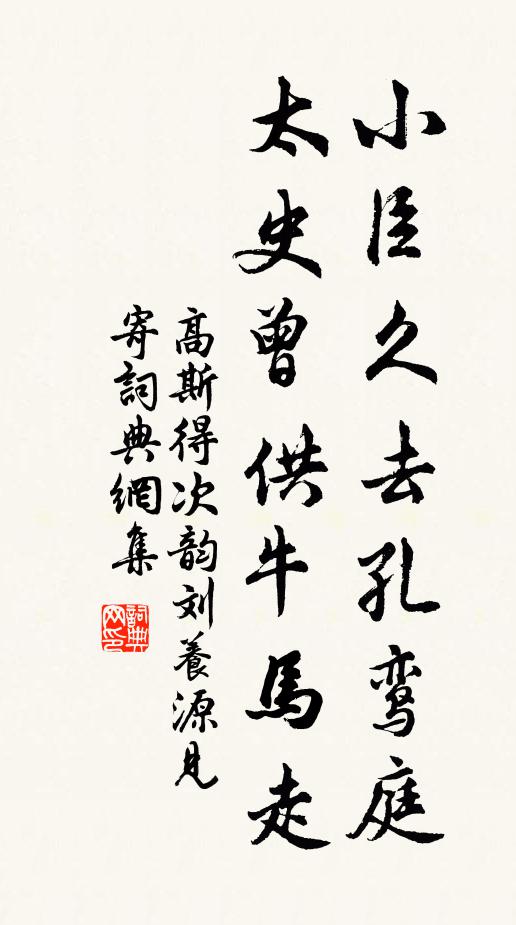 小臣久去孔鸾庭
太史曾供牛馬走
高斯得次韵刘養源見
寄詞典網集
詞典网印